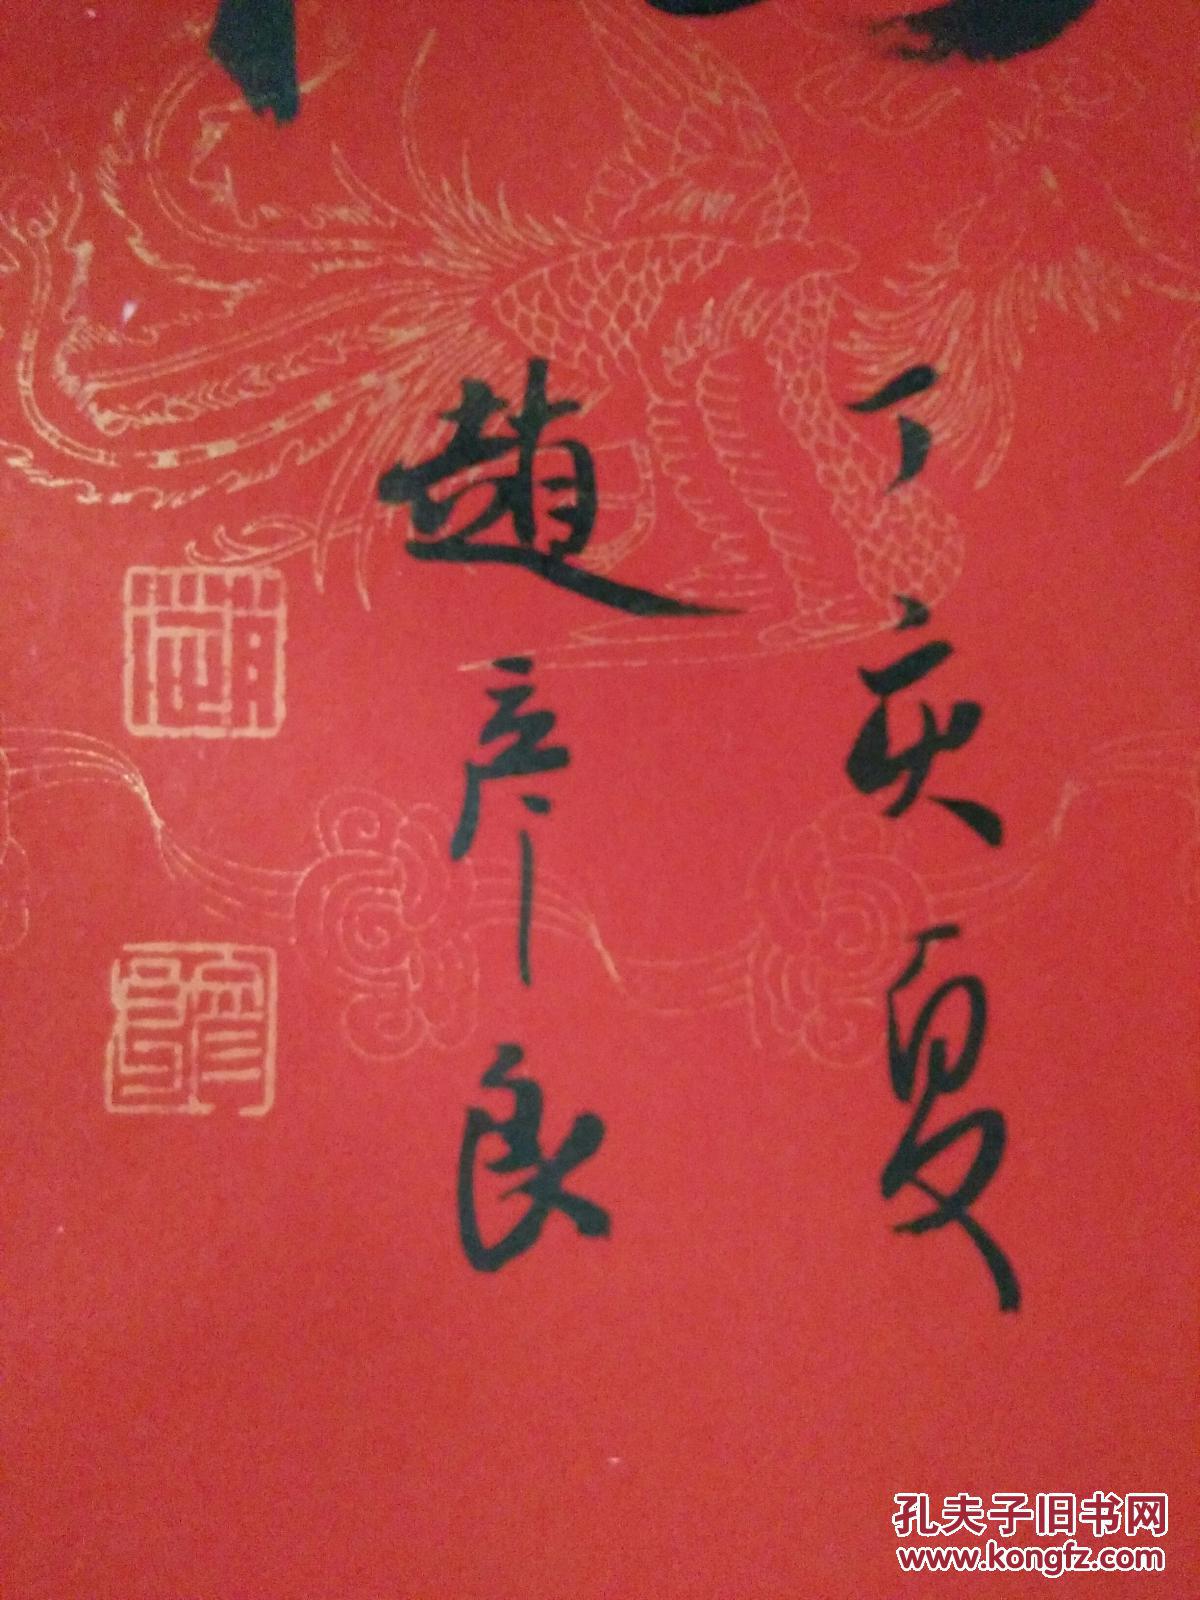 丁亥夏
趙彦良
孔夫子旧书网
www.kongfz.com